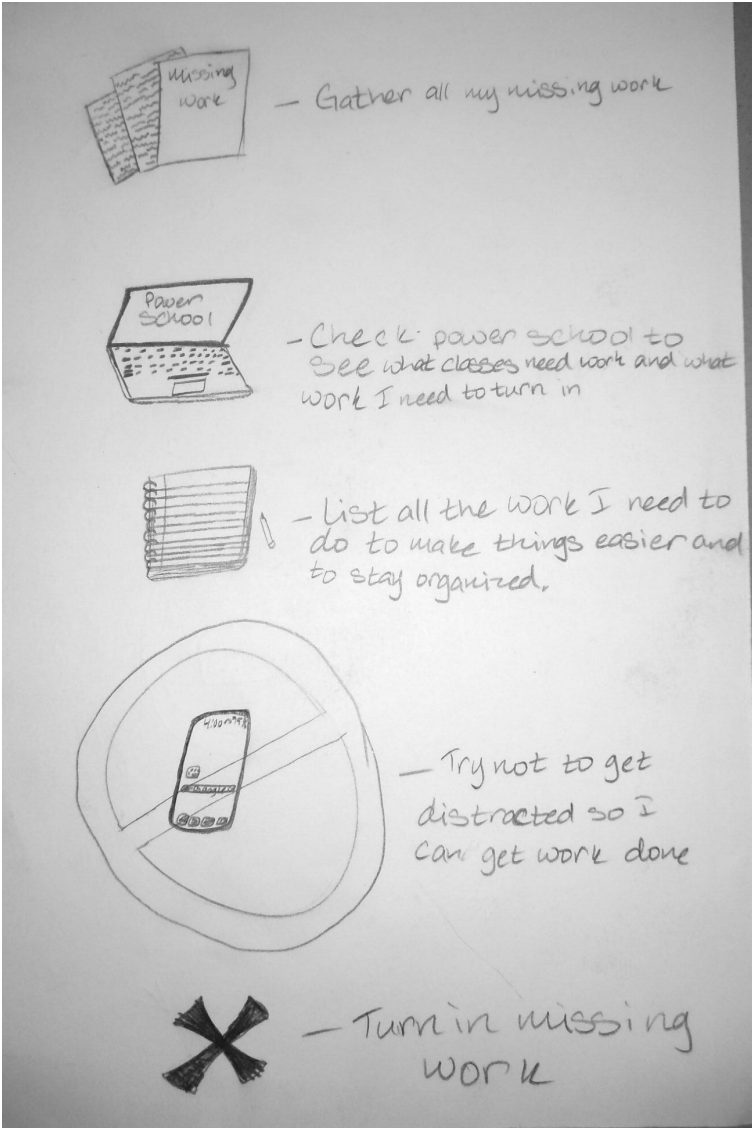 missing
work
- Gather all my missing work
Power
School
- Check power school to
see what classes need work and what
work I need to turn in
- List all the work I need to
do to make things easier and
to stay organized.
- Try not to get
distracted so I
can get work done
- Turn in missing
work